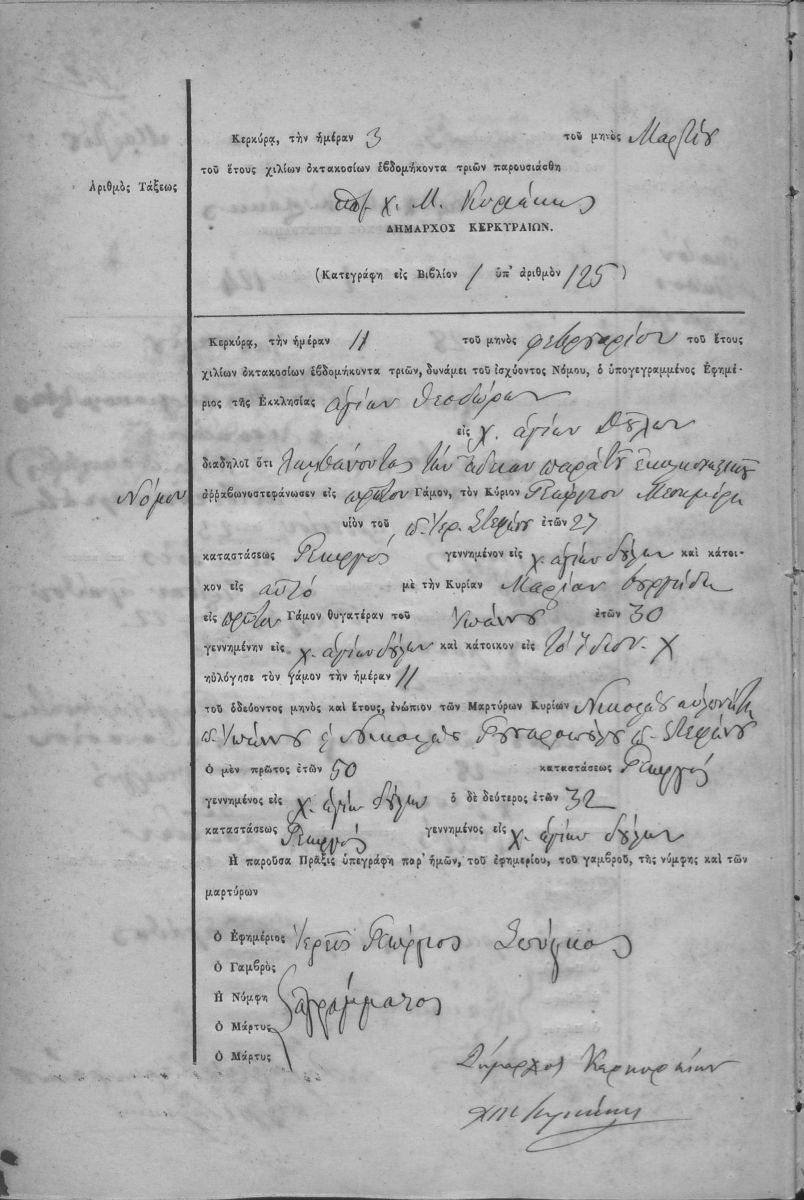 Κερκύρᾳ, τὴν ἡμέραν 3 τοῦ μηνὸς Μαρτίου
τοῦ ἔτους χιλίων ὀκτακοσίων ἑβδομήκοντα τριῶν παρουσιάσθη
Ἀριθμὸς Τάξεως
χ. Μ. Κυριάκης
ΔΗΜΑΡΧΟΣ ΚΕΡΚΥΡΑΙΩΝ.
(Κατεγράφη εἰς Βιβλίον 1 ὑπ' ἀριθμὸν 125)
Κερκύρᾳ, τὴν ἡμέραν 11 τοῦ μηνὸς φεβρουαρίου τοῦ ἔτους
χιλίων ὀκτακοσίων ἑβδομήκοντα τριῶν, δυνάμει τοῦ ἰσχύοντος Νόμου, ὁ ὑπογεγραμμένος Ἐφημέ-
ριος τῆς Ἐκκλησίας ἁγίων θεοδώρων
εἰς χ. ἁγίων Δούλων
διαδηλοῖ ὅτι λαμβάνοντας τὴν ἄδειαν παρὰ τοῦ
Νόμου
ἀῤῥαβωνοστεφάνωσεν εἰς πρῶτον Γάμον, τὸν Κύριον Γεώργιον
υἱὸν τοῦ π. ἱερ. Στεφάνου ἐτῶν 27
καταστάσεως Γεωργός γεννημένον εἰς χ. ἁγίων δούλων καὶ κάτοι-
κον εἰς αὐτό μὲ τὴν Κυρίαν Μαρίαν
εἰς πρῶτον Γάμον θυγατέραν τοῦ Ἰωάννου ἐτῶν 30
γεννημένην εἰς χ. ἁγίων δούλων καὶ κάτοικον εἰς τὸ ἴδιον. χ
ηὐλόγησε τὸν γάμον τὴν ἡμέραν 11
τοῦ ὁδεύοντος μηνὸς καὶ ἔτους, ἐνώπιον τῶν Μαρτύρων Κυρίων Νικολάου αὐλωνίτη
π. Ἰωάννου ἢ Νικολάου π. Στεφάνου
Ὁ μὲν πρῶτος ἐτῶν 50 καταστάσεως Γεωργός
γεννημένος εἰς χ. ἁγίων δούλων ὁ δὲ δεύτερος ἐτῶν 32
καταστάσεως Γεωργός γεννημένος εἰς χ. ἁγίων δούλων
Ἡ παροῦσα Πρᾶξις ὑπεγράφη παρ' ἡμῶν, τοῦ ἐφημερίου, τοῦ γαμβροῦ, τῆς νύμφης καὶ τῶν
μαρτύρων
Ὁ Ἐφημέριος Ἱερεὺς Γεώργιος
Ὁ Γαμβρὸς
Ἡ Νύμφη ἀγράμματος
Ὁ Μάρτυς
Ὁ Μάρτυς
Δήμαρχος Κερκυραίων